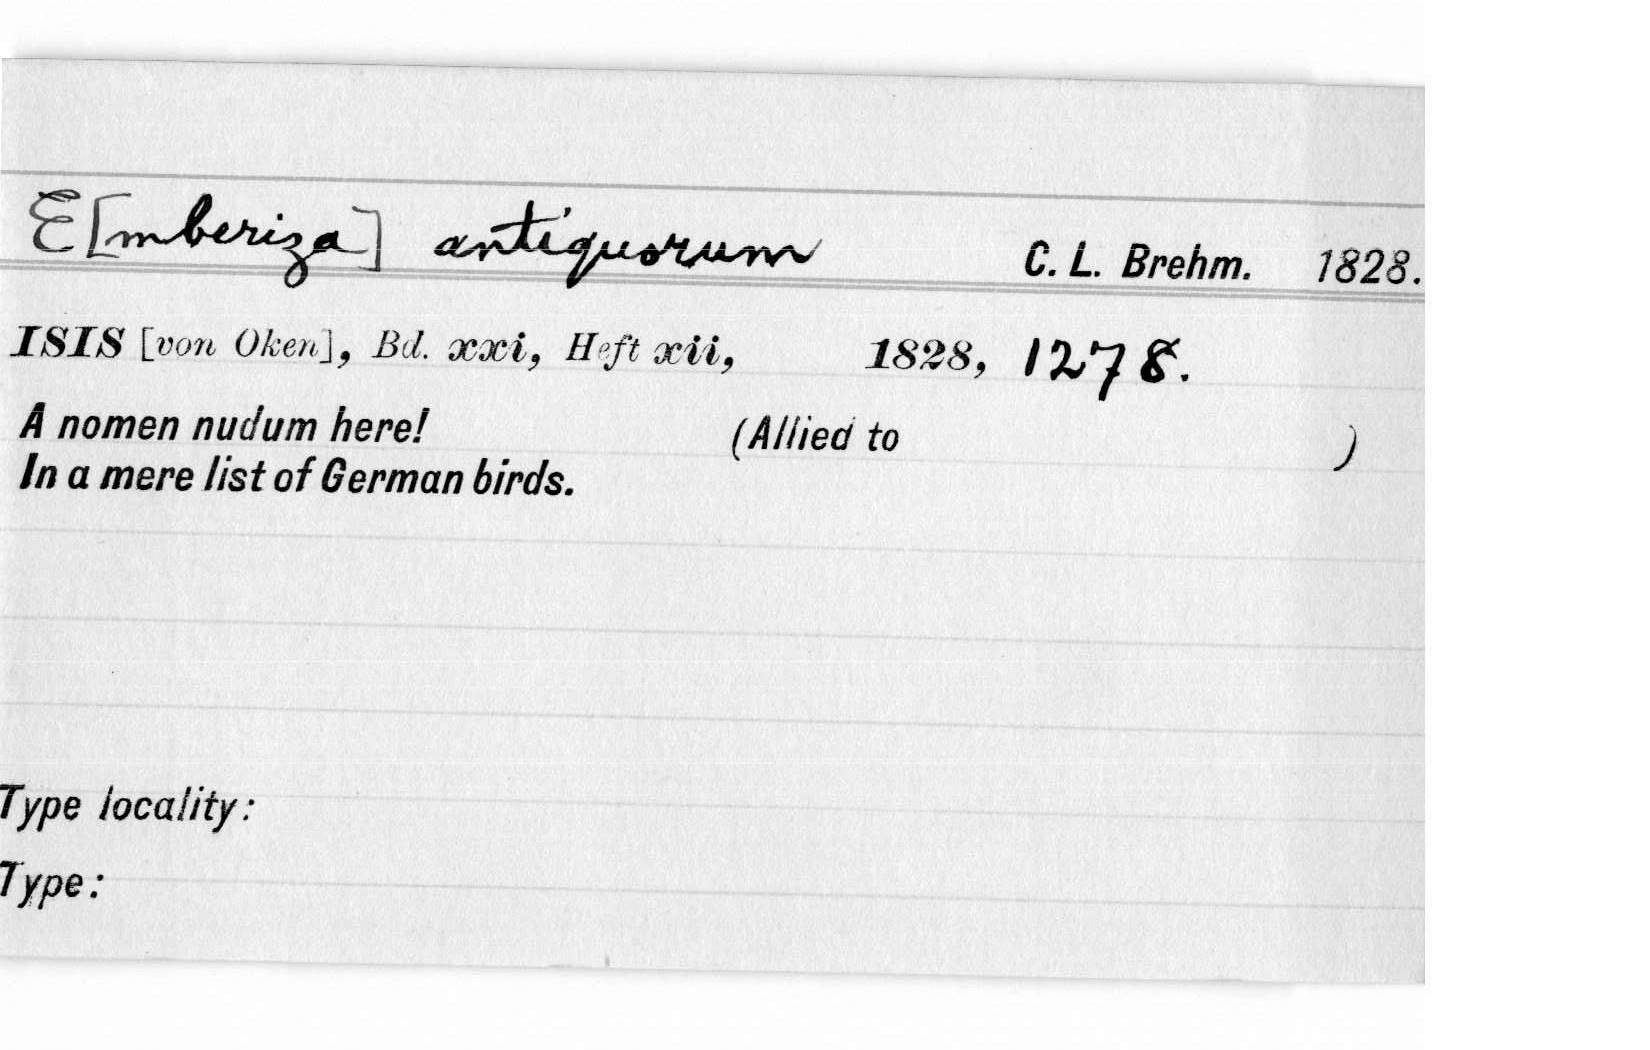 E[mberiza] antiquorum C. L. Brehm. 1828.
ISIS [von Oken], Bd. xxi, Heft xii, 1828, 1278.
A nomen nudum here! (Allied to )
In a mere list of German birds.
Type locality:
Type: